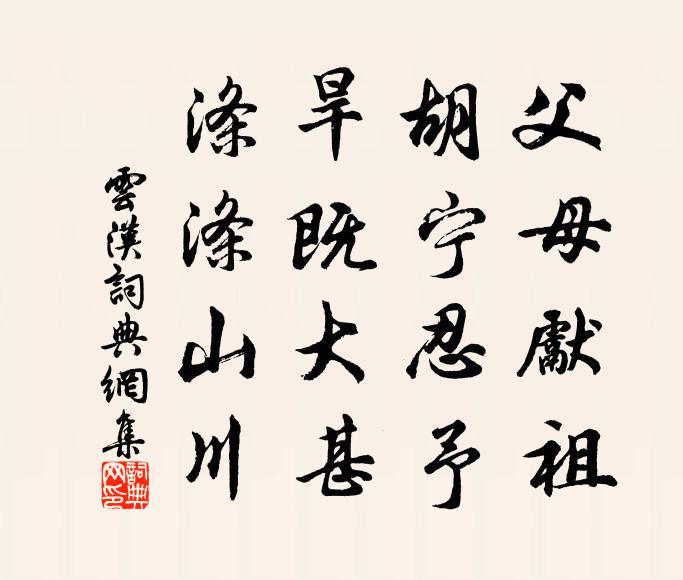 父母獻祖
胡宁忍予
旱既大甚
滌滌山川
雲漢詞典網集
詞典网印